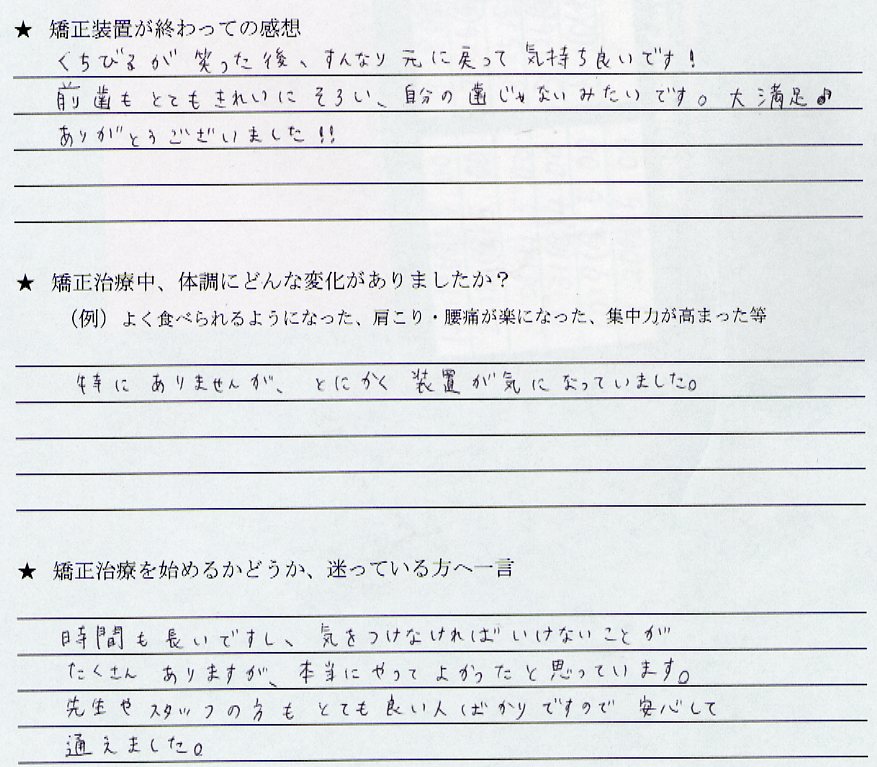 ★ 矯正装置が終わっての感想
くちびるが 笑った後、すんなり 元に戻って 気持ち良いです!
前歯も とても きれいに そろい、自分の 歯じゃないみたいです。大満足♪
ありがとうございました!!
★ 矯正治療中、体調にどんな変化がありましたか?
(例) よく食べられるようになった、肩こり・腰痛が楽になった、集中力が高まった等
特に ありませんが、とにかく 装置が気に なっていました。
★ 矯正治療を始めるかどうか、迷っている方へ一言
時間も 長いですし、気をつけなければ いけないことが
たくさん ありますが、本当に やって よかったと思っています。
先生や スタッフの方も とても 良い人 ばかり ですので 安心して
通えました。